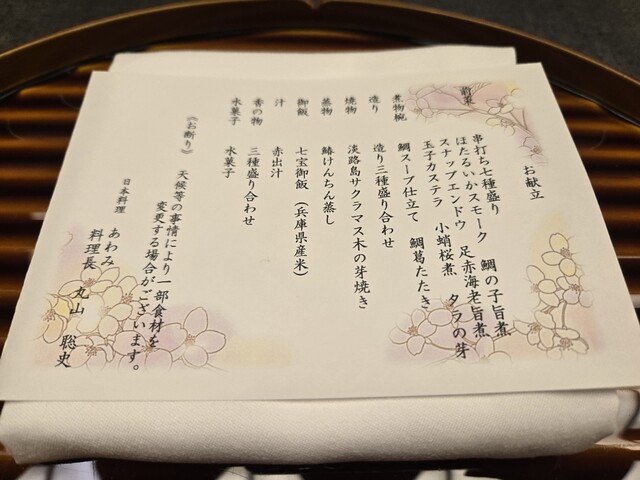 お献立
前菜
串打ち七種盛り
ほたるいかスモーク　鯛の子旨煮
スナップエンドウ　足赤海老旨煮
玉子カステラ　小蛸桜煮　タラの芽
煮物椀　鯛スープ仕立て　鯛葛たたき
造り　造り三種盛り合わせ
焼物　淡路島サクラマス木の芽焼き
蒸物　鰆けんちん蒸し
御飯　七宝御飯（兵庫県産米）
汁　赤出汁
香の物　三種盛り合わせ
水菓子　水菓子
《お断り》　天候等の事情により一部食材を
変更する場合がございます。
日本料理　あわみ
料理長　丸山　聡史